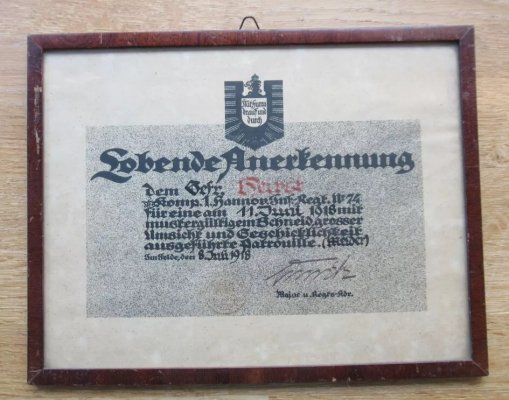 Mit Hurra
drauf und
durch
Lobende Anerkennung
dem Gefr.
Komp. 1. Hannov. Inf. Regt. Nº 74
für eine am 11. Juni 1918 mit
mustergültigem Schneid grosser
Umsicht und Geschicklichkeit
ausgeführte Patrouille.
Im Felde, den 8. Juli 1918
Major u. Regts-Kdr.